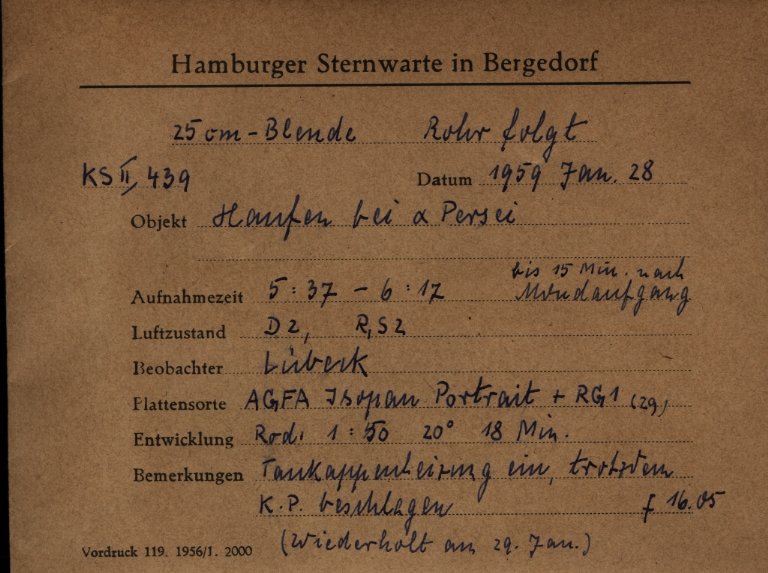 Hamburger Sternwarte in Bergedorf
25 cm-Blende Rohr folgt
KS II, 439 Datum 1959 Jan. 28
Objekt Haufen bei α Persei
bis 15 Min. nach
Aufnahmezeit 5:37 - 6:17 Mondaufgang
Luftzustand D2, R,S2
Beobachter Lübeck
Plattensorte AGFA Isopan Portrait + RG1 (29)
Entwicklung Rod. 1:50 20° 18 Min.
Bemerkungen Taukappenheizung ein, trotzdem
K.P. beschlagen f 16.05
(Wiederholt am 29. Jan.)
Vordruck 119. 1956/1. 2000